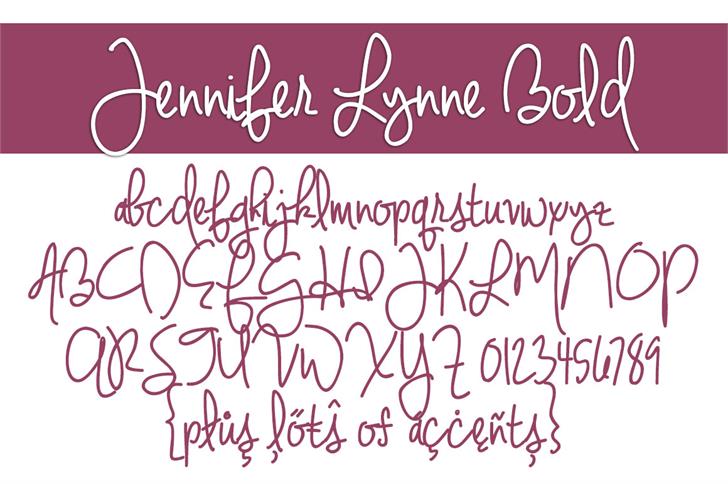 Jennifer Lynne Bold
abcdefghijklmnopqrstuvwxyz
ABCDEFGHIJKLMNOP
QRSTUVWXYZ 0123456789
{płüş ļőŧŝ of áçċęñţş}